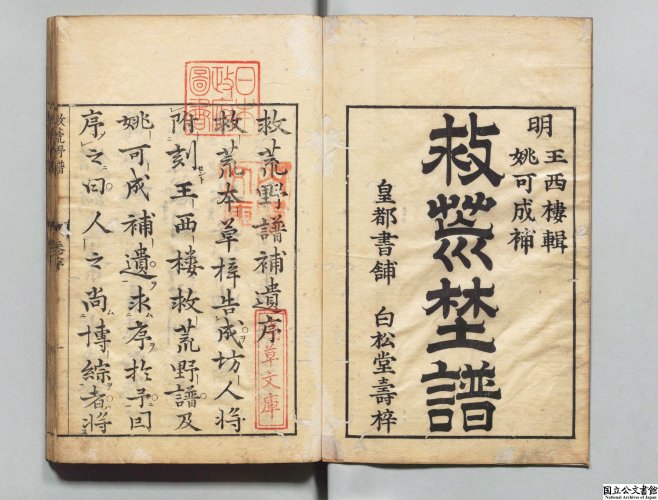 明 王西樓輯
姚可成補
救荒埜譜
皇都書舗 白松堂壽梓
救荒野譜補遺序
救荒本草梓告成坊人將
附刻王西樓救荒野譜及
姚可成補遺求序於予曰
序之曰人之尚博綜者將
日本
政府
圖書
草文庫
国立公文書館
National Archives of Japan